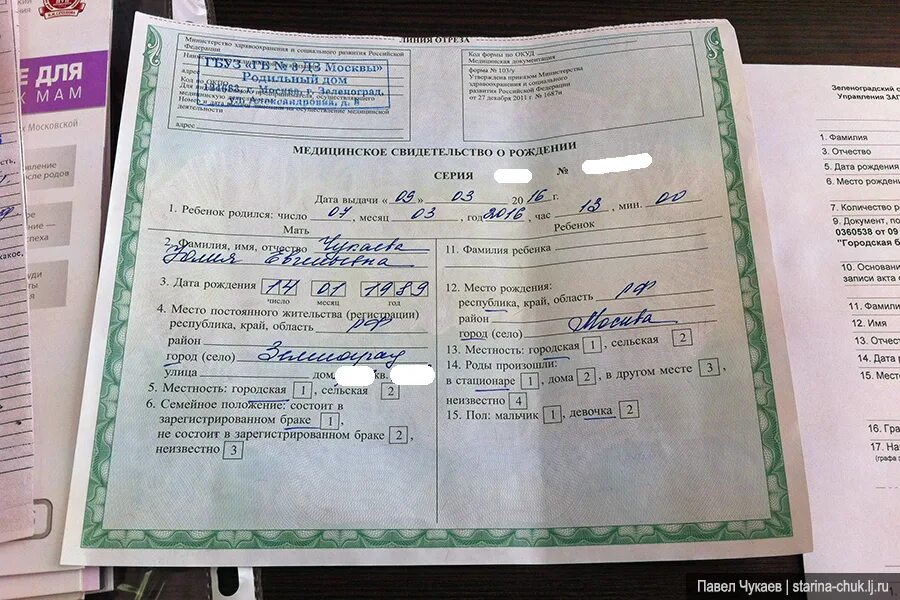 Е ДЛЯ
МАМ
Московской
после родов
ЛИНИЯ ОТРЕЗА
Министерство здравоохранения и социального развития Российской
Федерации
ГБУЗ «ГБ № 3 ДЗ Москвы»
Родильный дом
г. Москва, г. Зеленоград,
ул. Александровка, д. 8
деятельности
адрес
Код формы по ОКУД
Медицинская документация
форма № 103/у
Утверждена приказом Министерства
здравоохранения и социального
развития Российской Федерации
от 27 декабря 2011 г. № 1687н
МЕДИЦИНСКОЕ СВИДЕТЕЛЬСТВО О РОЖДЕНИИ
СЕРИЯ №
Дата выдачи « 09 » 03 2016 г.
1. Ребенок родился: число 07, месяц 03, год 2016, час 13, мин. 00
Мать
2. Фамилия, имя, отчество Чукаева
Юлия Евгеньевна
3. Дата рождения 14 01 1989
число месяц год
4. Место постоянного жительства (регистрации)
республика, край, область РФ
район
город (село) Зеленоград
улица дом кв.
5. Местность: городская 1, сельская 2
6. Семейное положение: состоит в
зарегистрированном браке 1,
не состоит в зарегистрированном браке 2,
неизвестно 3
Ребенок
11. Фамилия ребенка
12. Место рождения:
республика, край, область РФ
район
город (село) Москва
13. Местность: городская 1, сельская 2
14. Роды произошли:
в стационаре 1, дома 2, в другом месте 3,
неизвестно 4
15. Пол: мальчик 1, девочка 2
Зеленоградский
Управления ЗАГ
1. Фамилия
3. Отчество
5. Дата рождения
6. Место рождени
7. Количество р
9. Документ, по
0360538 от 09
"Городская б
10. Основани
записи акта
11. Фамили
12. Имя
13. Отчест
14. Дата р
15. Мест
16. Гра
17. На
(графа з
Павел Чукаев | starina-chuk.lj.ru